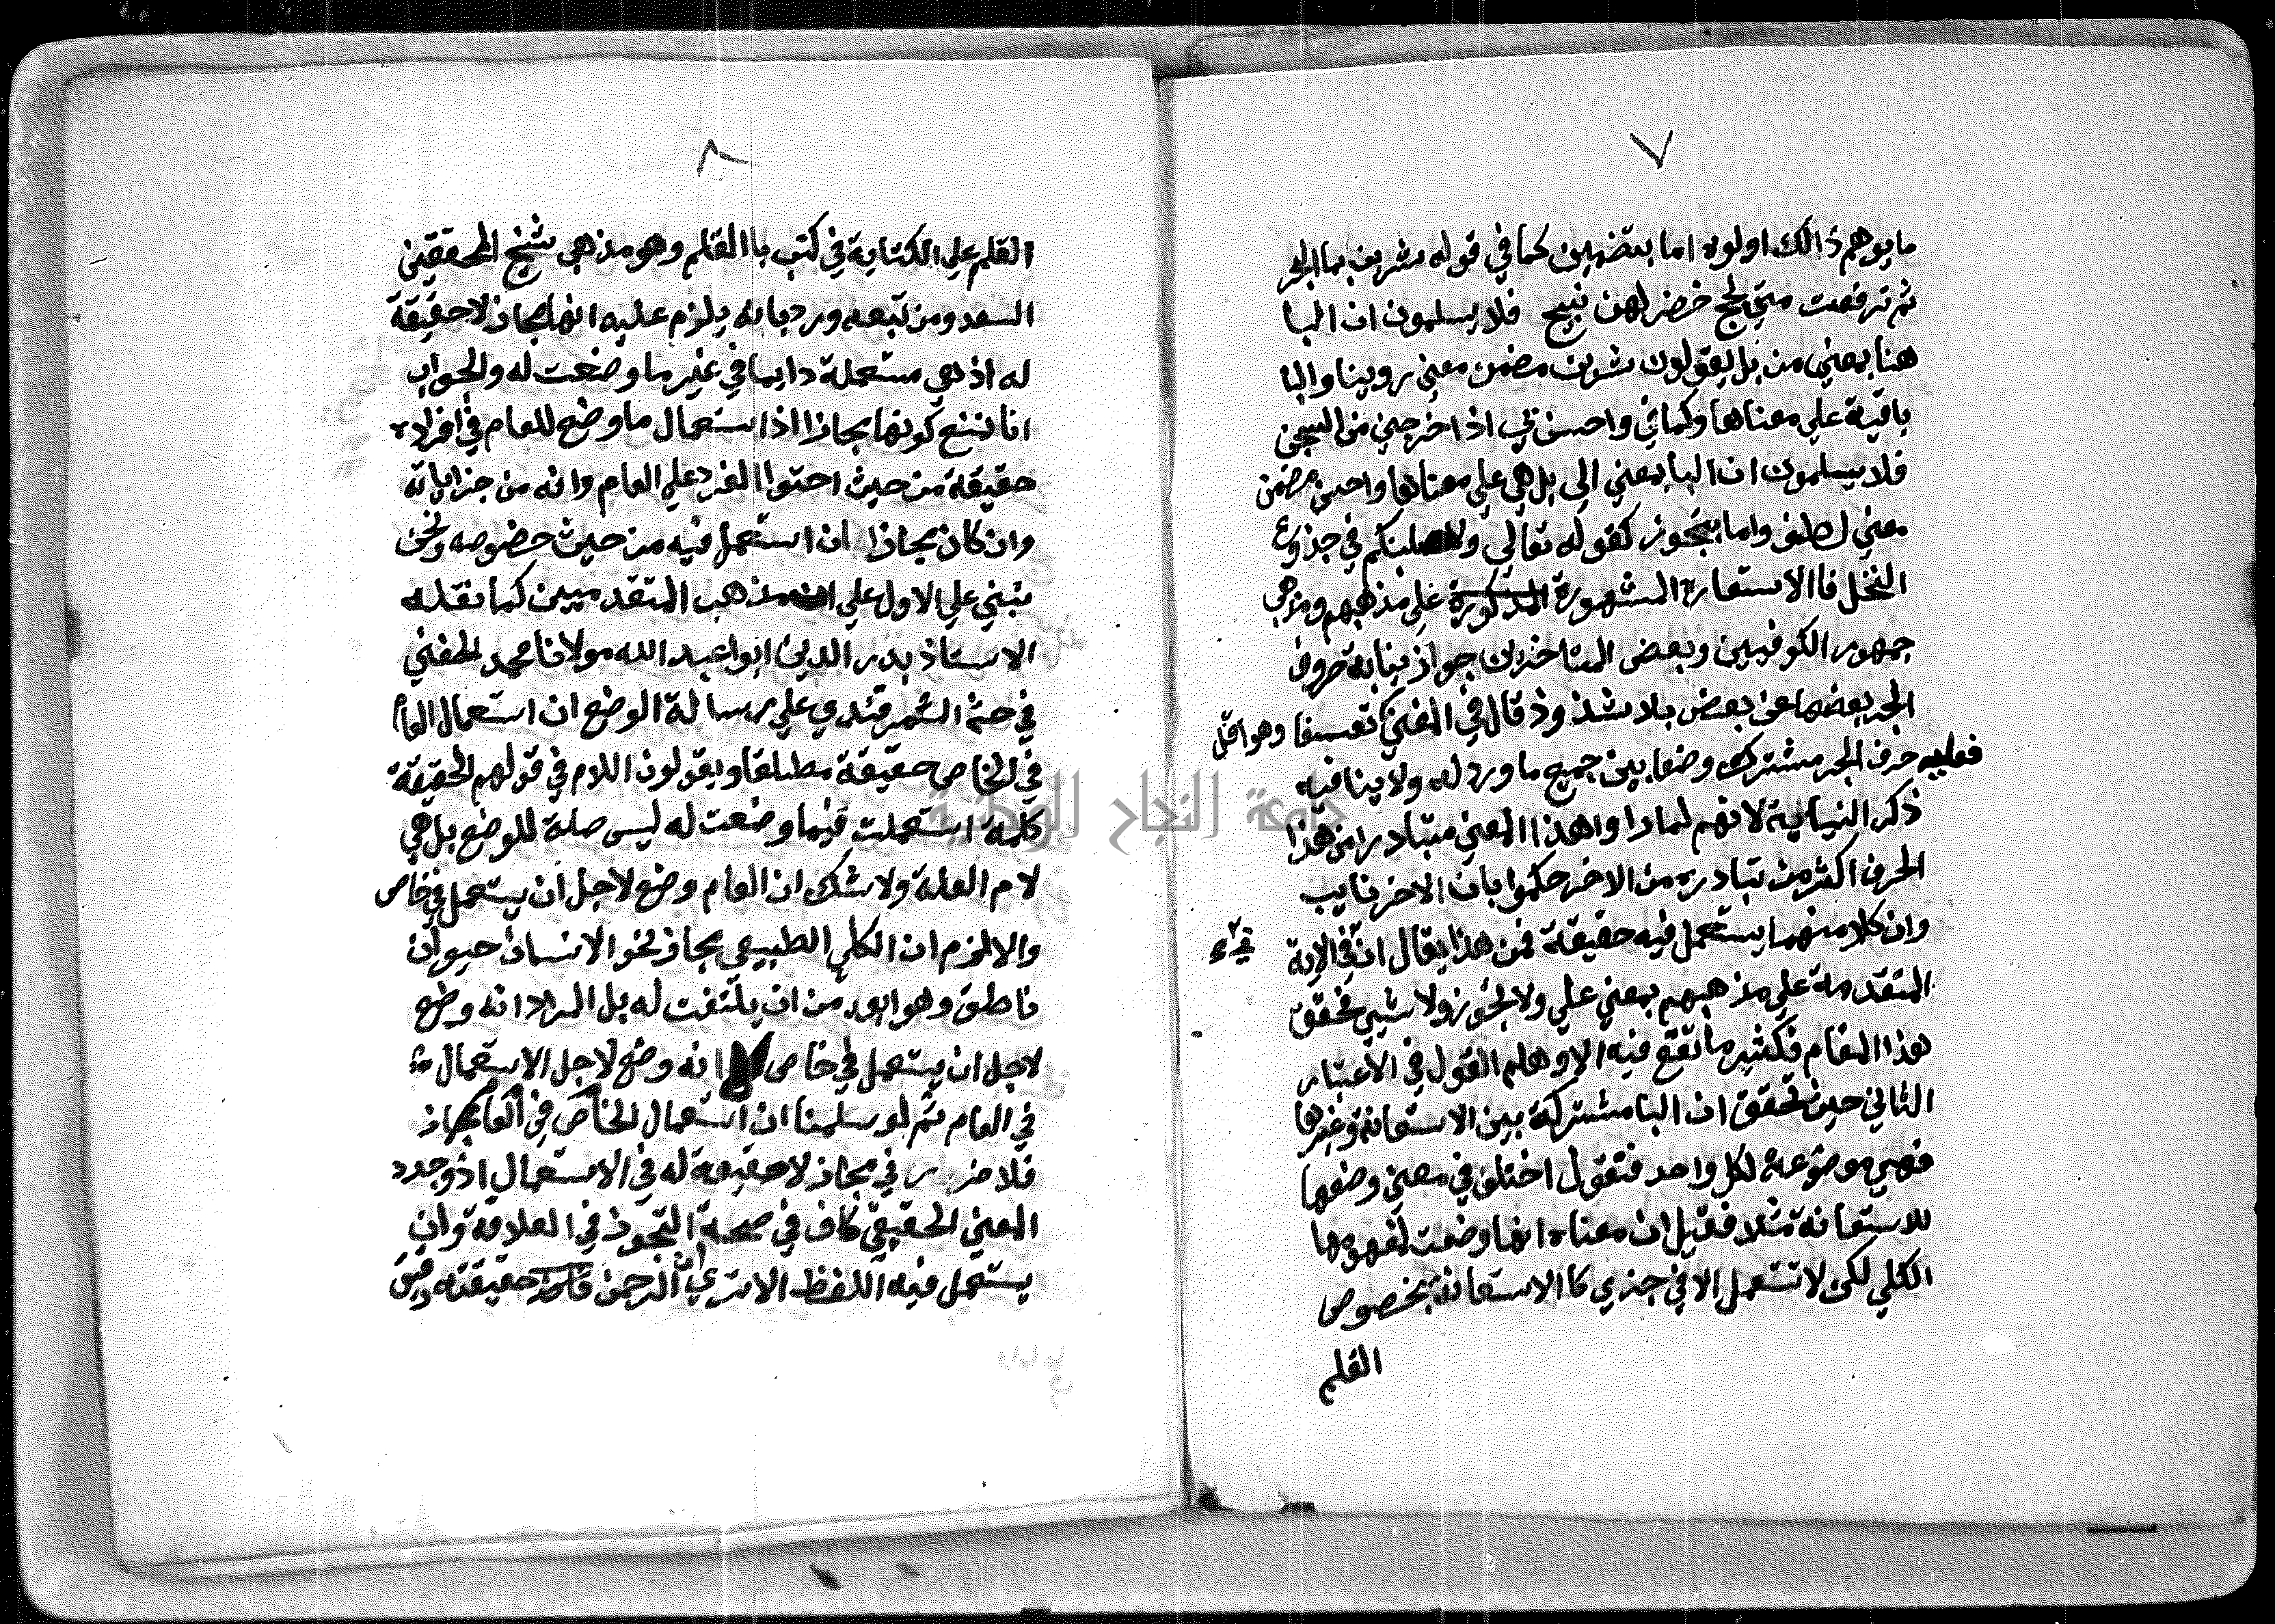 ٧
ما يوهم ذالك اولوه اما بتضمين كما في قوله شربن بما البحر
ثم ترفعت متى لجج خضر لهن نييج فلا يسلمون ان البا
هنا بمعنى من بل يقولون شربن مضمن معنى روينا والبا
باقية على معناها وكما في واحسن بي اذ اخرجني من السجن
فلا يسلمون ان البا بمعنى الى بل هي على معناها واحسن مضمن
معنى لطف واما بتجوز كقوله تعالى ولاصلبنكم في جذوع
النخل فا الاستعارة المشهورة المذكورة على مذهبهم ومذهب
جمهور الكوفيين وبعض المتاخرين جواز نيابة حروف
الجر بعضها عن بعض بلا شذوذ قال في المغنى تعسفا وهو اقل
فعليه حرف الجر مشترك وضعا بين جميع ما ورد له ولا ينافيه
ذكر النيابة لانهم لما راوا هذا المعنى متبادرا من هذا
الحرف اكثر من تبادره من الاخر حكموا بان الاخر نايب
وان كلا منهما يستعمل فيه حقيقة فمن هذا يقال ان في الاية
المتقدمة على مذهبهم بمعنى على ولا تجوز ولا شيي فحقق
هذا المقام فكثير ما تقع فيه الاوهام القول في الاعتبار
الثاني حيث تحقق ان البا مشتركة بين الاستعانة وغيرها
فهي موضوعة لكل واحد فنقول اختلف في معنى وضعها
للاستعانة مثلا فقيل ان معناه انها وضعت لمفهومها
الكلي لكن لا تستعمل الا في جزي كا الاستعانة بخصوص
القلم
٨
القلم على الكتابة في كتب با القلم وهو مذهب شيخ المحققين
السعد ومن تبعه ورد بانه يلزم عليه انها مجاز لا حقيقة
له اذ هي مستعملة دايما في غير ما وضعت له والجواب
انا نمنع كونها مجازا اذ استعمال ما وضع للعام في افراده
حقيقة من حيث احتوا الفرد على العام وانه من جزاياته
وان كان مجازا ان استعمل فيه من حيث خصوصه ونحن
نبني على الاول على انه مذهب المتقدميين كما نقله
الاستاذ بدر الدين ابوا عبد الله مولانا محمد الحفني
في حشة السمرقندي على رسالة الوضع ان استعمال العام
في الخاص حقيقة مطلقا ويقولون اللام في قولهم الحقيقة
كلمة استعملت فيما وضعت له ليس صلة للوضع بل هي
لام العلة ولا شك ان العام وضع لاجل ان يستعمل في خاص
والا لزم ان الكلي الطبيعي مجاز نحو الانسان حيوان
ناطق وهو ابعد من ان يلتفت له بل المراد انه وضع
لاجل ان يستعمل في خاص انه وضع لاجل الاستعمال
في العام ثم لو سلمنا ان استعمال الخاص في العام مجاز
فلا ضرر في مجاز لا حقيقة له في الاستعمال اذ وجود
المعنى الحقيقي كاف في صحة التجوز في العلاقة وان
يستعمل فيه اللفظ الا ترى ان الرحمن حقيقته رقيق